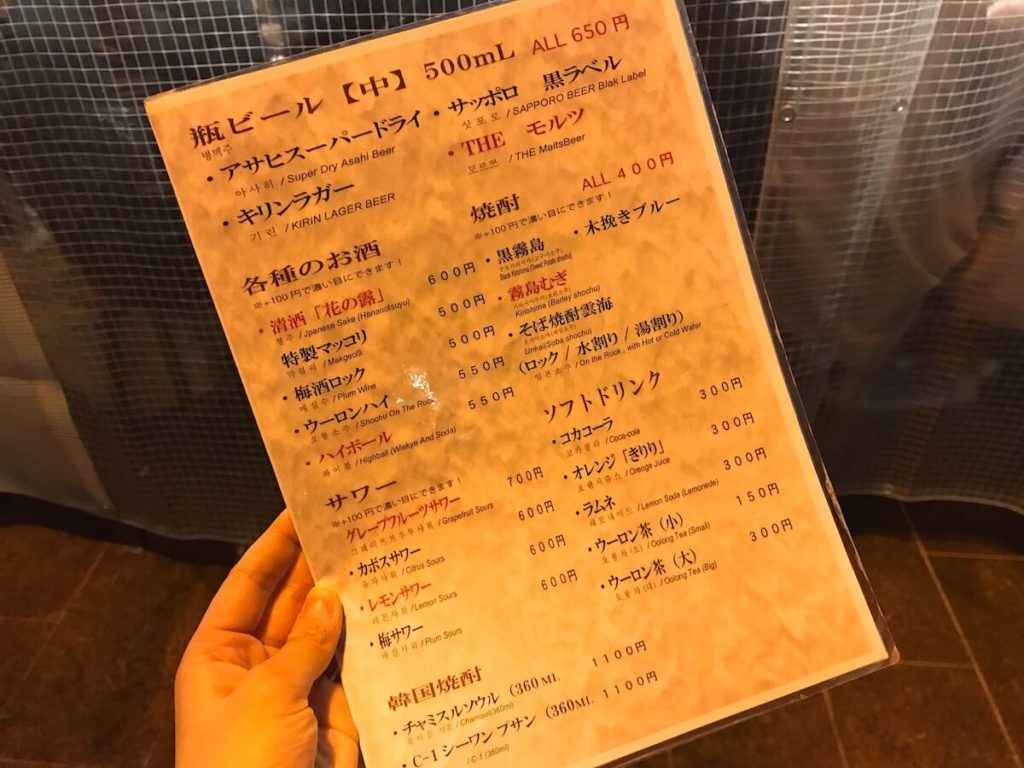 瓶ビール【中】500mL ALL 650円
병맥주
・アサヒスーパードライ
아사히 / Super Dry Asahi Beer
・キリンラガー
기린 / KIRIN LAGER BEER
・サッポロ 黒ラベル
삿포로 / SAPPORO BEER Blak Label
・THE モルツ
모르쯔 / THE MaltsBeer
各種のお酒
※+100円で濃い目にできます!
・清酒「花の露」 600円
청주 / Jpanese Sake (Hananotsuyu)
特製マッコリ 500円
막걸리 / Makgeolli
・梅酒ロック 500円
매실주 / Plum Wine
・ウーロンハイ 550円
오룡소주 / Shochu On The Rock
・ハイボール 550円
하이볼 / Highball (Wiskye And Soda)
サワー
※+100円で濃い目にできます!
グレープフルーツサワー 700円
그레이프프루투사워 / Grapefruit Sours
・カボスサワー 600円
유자사워 / Citrus Sours
・レモンサワー 600円
레몬사워 / Lemon Sours
・梅サワー 600円
매실사워 / Plum Sours
韓国焼酎
・チャミスルソウル (360ML 1100円
참이슬 서울 / Chamisul(360ml)
・C-1 シーワン プサン (360ML 1100円
/ C-1 (360ml)
焼酎 ALL 400円
※+100円で濃い目にできます!
・黒霧島
Black Kirishima (Sweet Potato shochu)
・木挽きブルー
・霧島むぎ
Kirishima (Barley shochu)
・そば焼酎雲海
Unkai(Soba shochu)
(ロック / 水割り / 湯割り)
일본소주 / On the Rock , with Hot or Cold Water
ソフトドリンク
・コカコーラ 300円
코카콜라 / Coca-cola
・オレンジ「きりり」 300円
오렌지쥬스 / Orenge Juice
・ラムネ 300円
레모네이드 / Lemon Soda (Lemonede)
・ウーロン茶(小) 150円
오룡차(소) / Oolong Tea (Small)
・ウーロン茶(大) 300円
오룡차(대) / Oolong Tea (Big)